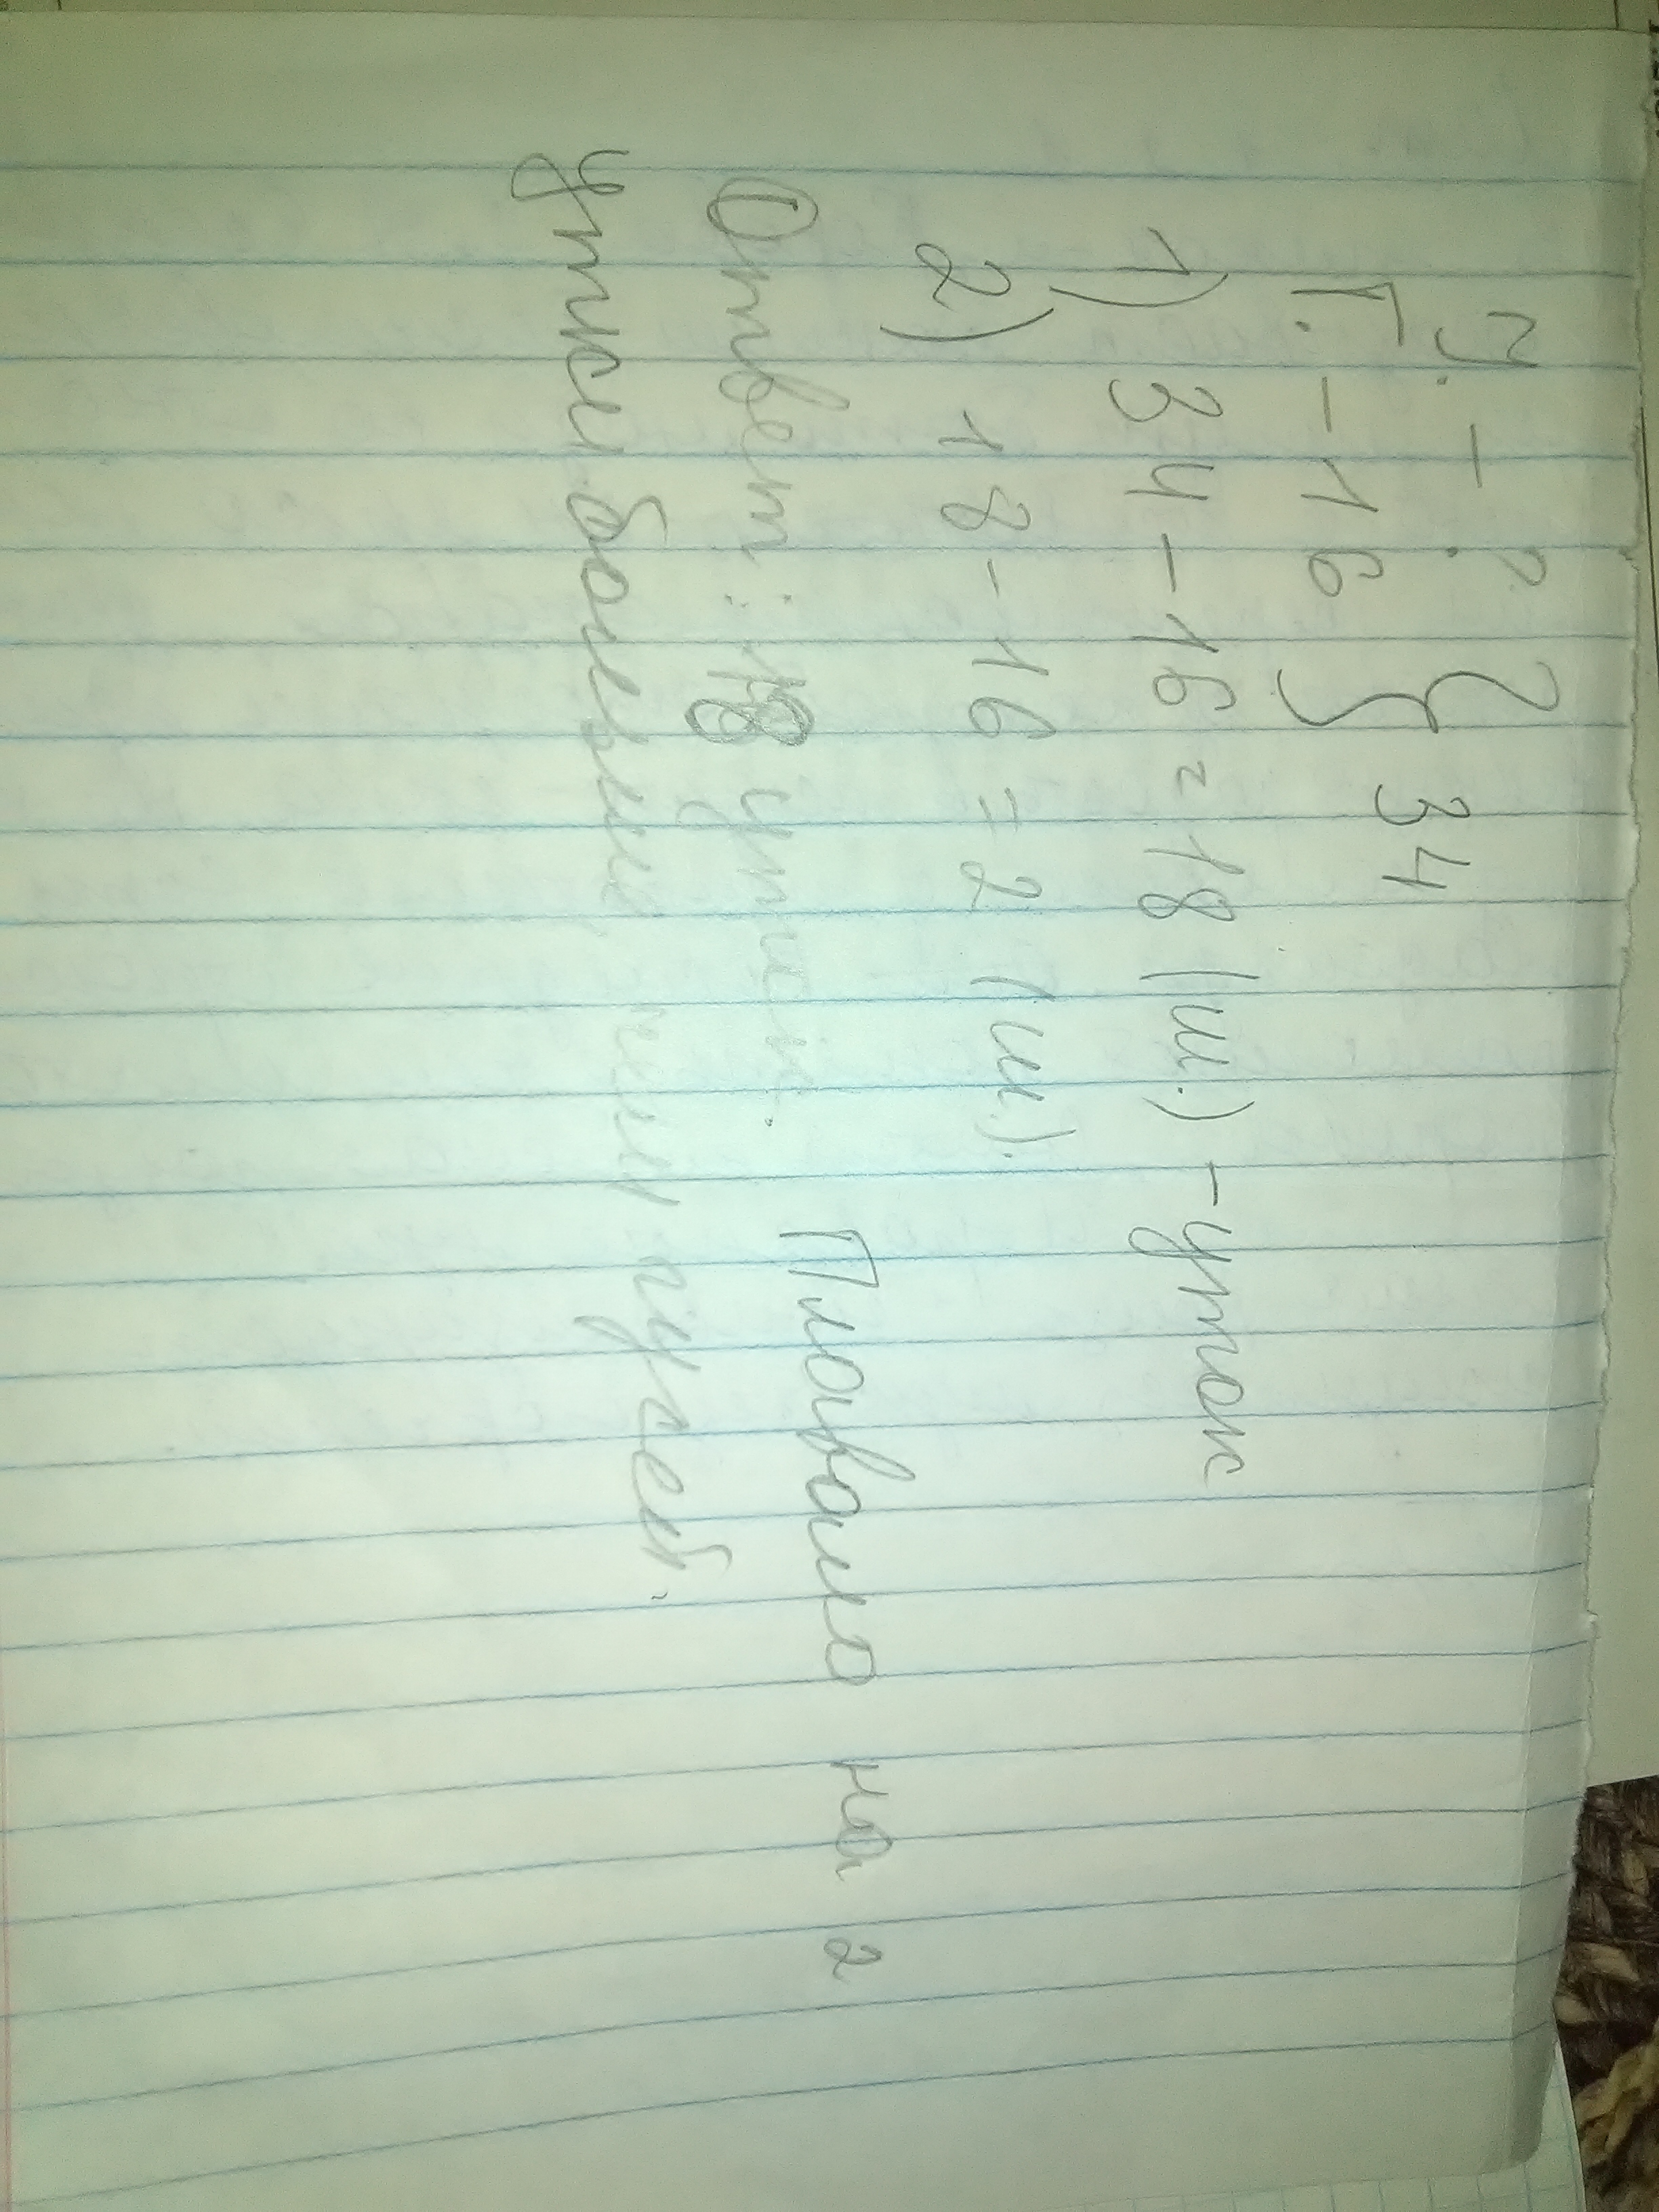 У. - ? } 34
Г. - 16
1) 34 - 16 = 18 (ш.) - уток
2) 18 - 16 = 2 (ш.).
Ответ: 18 уток. Плавало на 2
утки больше, чем гусей.